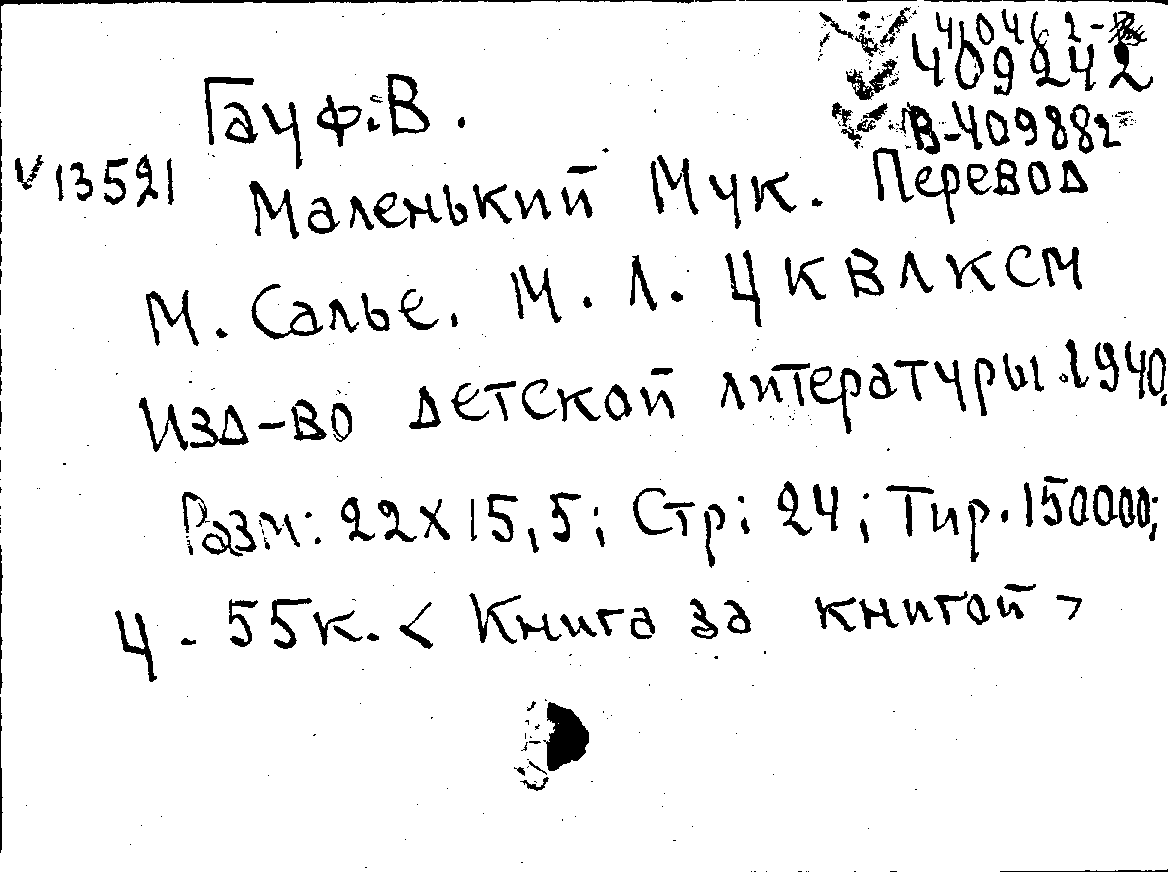 409242
В-409882
Гауф. В.
V 13521
Маленький Мук. Перевод
М. Салье. М. Л. ЦК ВЛКСМ
Изд-во детской литературы. 1940.
Разм: 22х15,5; Стр: 24; Тир. 150000;
Ц - 55к. < Книга за книгой >